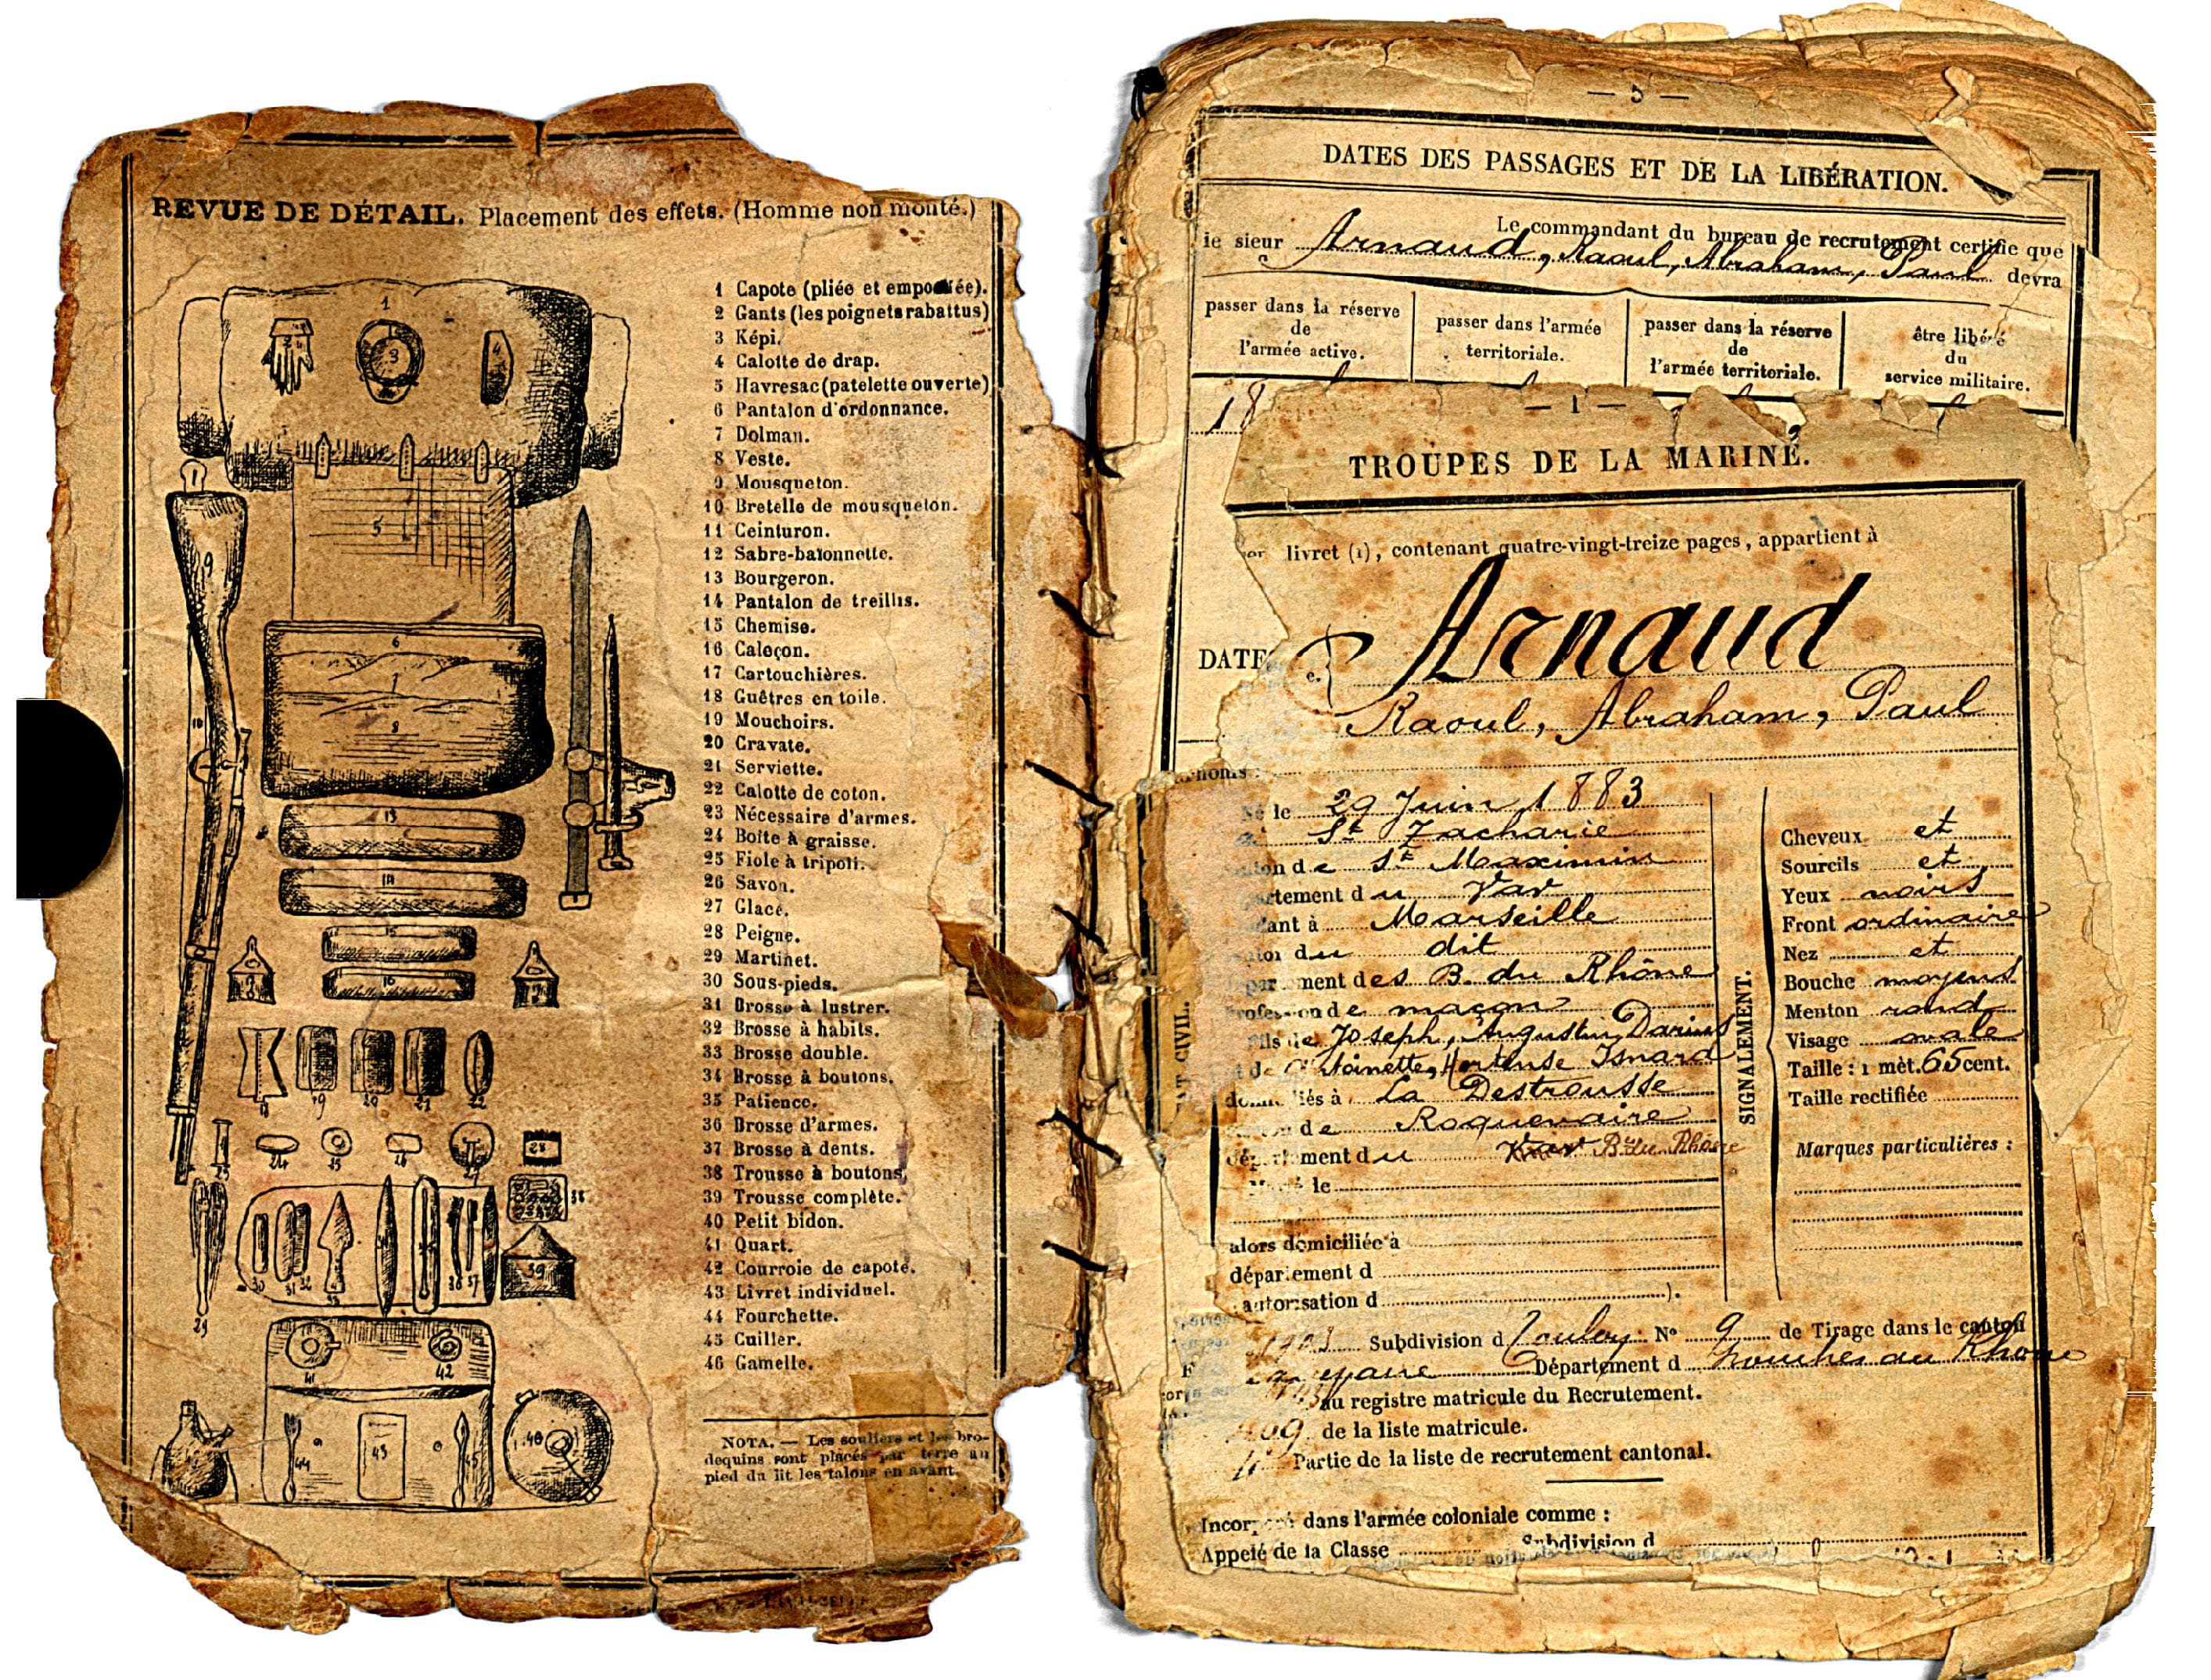 REVUE DE DÉTAIL. Placement des effets. (Homme non monté.)
1 Capote (pliée et empochée).
2 Gants (les poignets rabattus)
3 Képi.
4 Calotte de drap.
5 Havresac (patelette ouverte)
6 Pantalon d'ordonnance.
7 Dolman.
8 Veste.
9 Mousqueton.
10 Bretelle de mousqueton.
11 Ceinturon.
12 Sabre-baïonnette.
13 Bourgeron.
14 Pantalon de treillis.
15 Chemise.
16 Caleçon.
17 Cartouchières.
18 Guêtres en toile.
19 Mouchoirs.
20 Cravate.
21 Serviette.
22 Calotte de coton.
23 Nécessaire d'armes.
24 Boîte à graisse.
25 Fiole à tripoli.
26 Savon.
27 Glace.
28 Peigne.
29 Martinet.
30 Sous-pieds.
31 Brosse à lustrer.
32 Brosse à habits.
33 Brosse double.
34 Brosse à boutons.
35 Patience.
36 Brosse d'armes.
37 Brosse à dents.
38 Trousse à boutons.
39 Trousse complète.
40 Petit bidon.
41 Quart.
42 Courroie de capote.
43 Livret individuel.
44 Fourchette.
45 Cuiller.
46 Gamelle.
NOTA. — Les souliers et les bro-
dequins sont placés par terre au
pied du lit les talons en avant.
— 5 —
DATES DES PASSAGES ET DE LA LIBÉRATION.
Le commandant du bureau de recrutement certifie que
le sieur Arnaud, Raoul, Abraham, Paul devra
passer dans la réserve de l'armée active.
passer dans l'armée territoriale.
passer dans la réserve de l'armée territoriale.
être libéré du service militaire.
18
— 1 —
TROUPES DE LA MARINE.
livret (1), contenant quatre-vingt-treize pages, appartient à
DATE
Arnaud
Raoul, Abraham, Paul
Né le 29 Juin 1883
à St Zacharie
de St Maximin
du Var
à Marseille
du dit
des B. du Rhône
de maçon
Fils de Joseph, Augustin Darius
et de Antoinette, Hortense Isnard
domiciliés à La Destrousse
de Roquevaire
département du Var B. du Rhône
le
alors domiciliée à
département d
autorisation d ).
ÉTAT CIVIL.
SIGNALEMENT.
Cheveux et
Sourcils et
Yeux noirs
Front ordinaire
Nez et
Bouche moyens
Menton rond
Visage ovale
Taille : 1 mèt. 65 cent.
Taille rectifiée
Marques particulières :
1903 Subdivision d Toulon N° 9 de Tirage dans le canton
Département d Bouches du Rhône
au registre matricule du Recrutement.
de la liste matricule.
Partie de la liste de recrutement cantonal.
Incorporé dans l'armée coloniale comme :
Appelé de la Classe Subdivision d